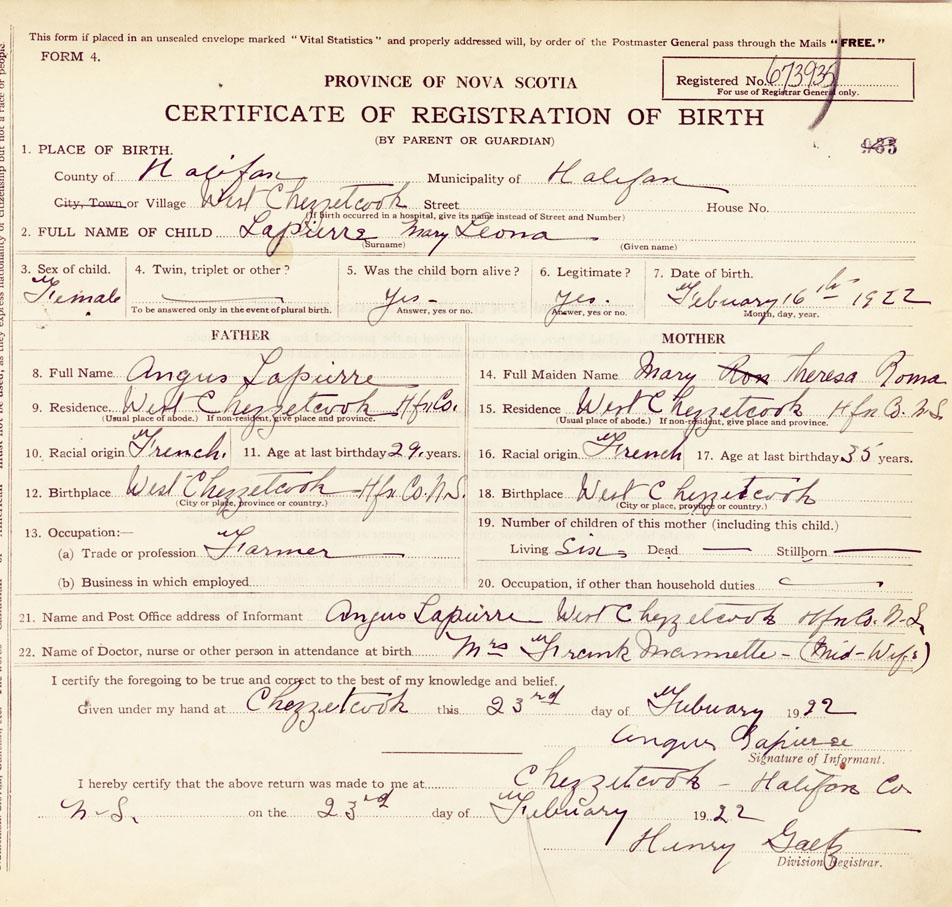 This form if placed in an unsealed envelope marked "Vital Statistics" and properly addressed will, by order of the Postmaster General pass through the Mails "FREE."
FORM 4.
Registered No. 673935
For use of Registrar General only.
PROVINCE OF NOVA SCOTIA
CERTIFICATE OF REGISTRATION OF BIRTH
(BY PARENT OR GUARDIAN)
935
1. PLACE OF BIRTH.
County of Halifax Municipality of Halifax
City, Town or Village West Chezzetcook Street House No.
(If birth occurred in a hospital, give its name instead of Street and Number)
2. FULL NAME OF CHILD Lapierre Mary Leona
(Surname) (Given name)
3. Sex of child. 4. Twin, triplet or other? 5. Was the child born alive? 6. Legitimate? 7. Date of birth.
Female Yes- Yes. February 16th 1922
To be answered only in the event of plural birth. Answer, yes or no. Answer, yes or no. Month, day, year.
FATHER
8. Full Name Angus Lapierre
9. Residence West Chezzetcook Hfx Co.
(Usual place of abode.) If non-resident, give place and province.
10. Racial origin French. 11. Age at last birthday 29. years.
12. Birthplace West Chezzetcook Hfx Co. N.S.
(City or place, province or country.)
13. Occupation:—
(a) Trade or profession Farmer
(b) Business in which employed
MOTHER
14. Full Maiden Name Mary Rom Theresa Roma
15. Residence West Chezzetcook Hfx Co. N.S.
(Usual place of abode.) If non-resident, give place and province.
16. Racial origin French 17. Age at last birthday 35 years.
18. Birthplace West Chezzetcook
(City or place, province or country.)
19. Number of children of this mother (including this child.)
Living Six Dead — Stillborn —
20. Occupation, if other than household duties
21. Name and Post Office address of Informant Angus Lapierre West Chezzetcook Hfx Co. N.S.
22. Name of Doctor, nurse or other person in attendance at birth. Mrs Frank Mannette - (Mid-Wife)
I certify the foregoing to be true and correct to the best of my knowledge and belief.
Given under my hand at Chezzetcook this 23rd day of February 1922
Angus Lapierre
Signature of Informant.
I hereby certify that the above return was made to me at Chezzetcook - Halifax Co
N-S. on the 23rd day of February 1922
Henry Gaetz
Division Registrar.